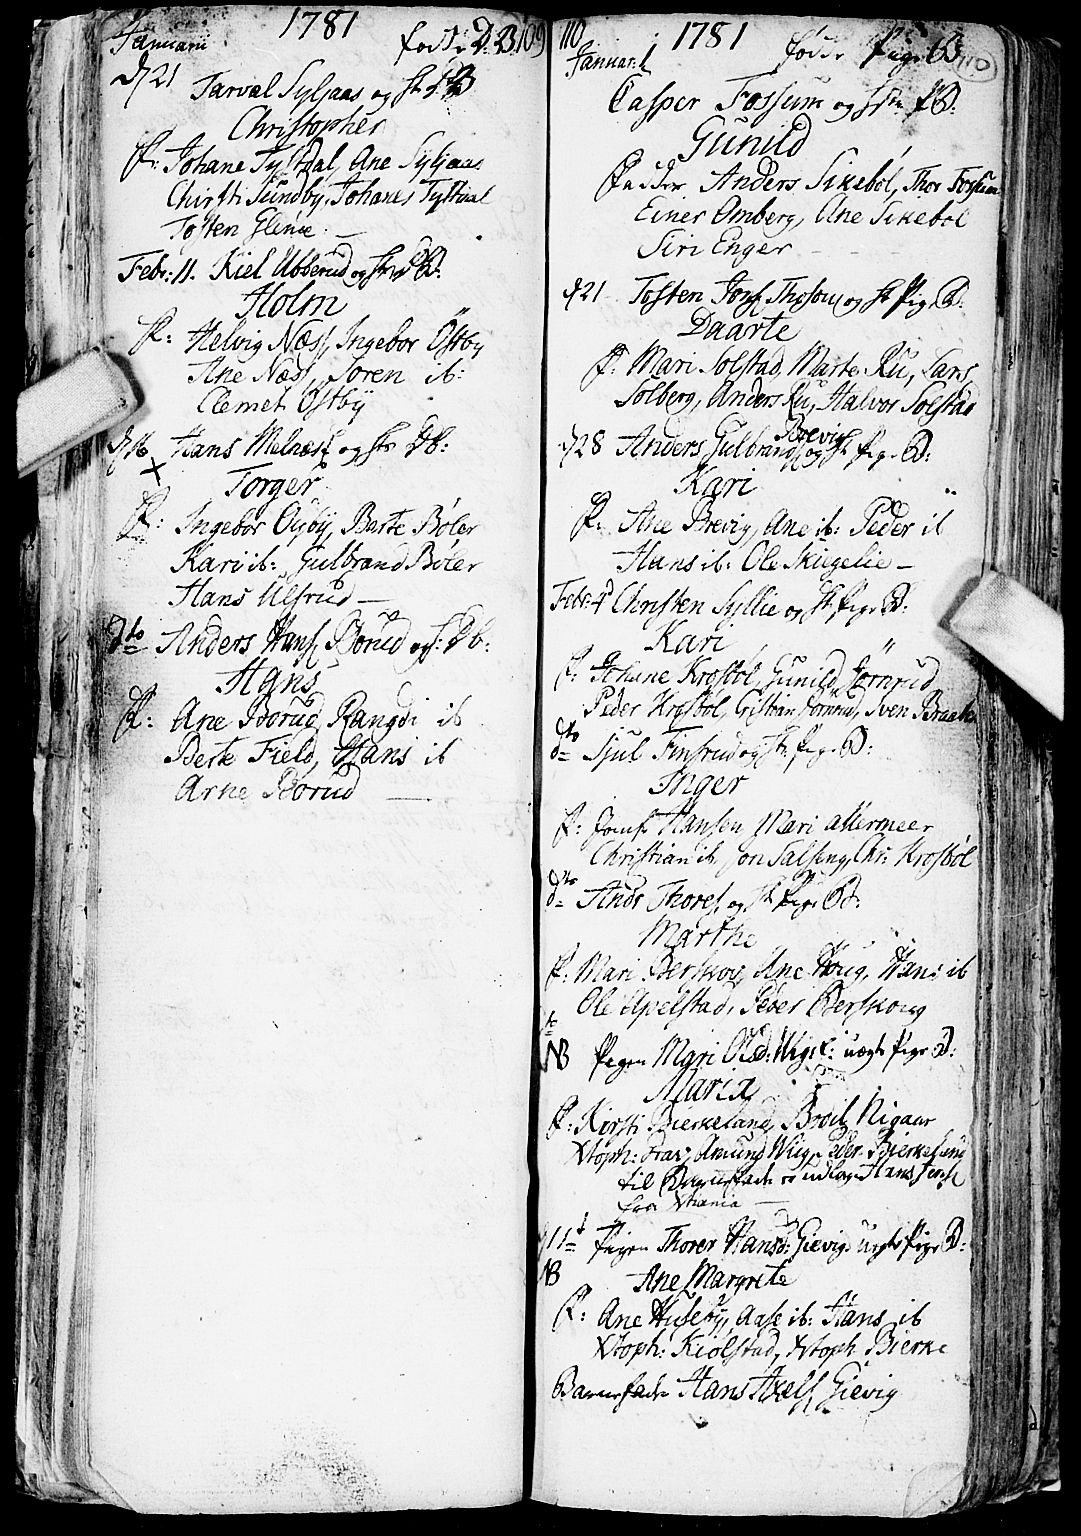 1781
Januarii fødde D: B: 109
d 21 Tarval Syljaas og hst: D: B
Christopher
F: Johane Tystdal, Ane Syljaas
Chirsti Sundby, Johanes Tystdal
Tosten Glinie
Febr: 11. Kiel Ubberud og hstr D B:
Holm
F: Helvig Næss, Ingebor Östby
Ane Næss, Soren ib:
Clemet Östby
d 16 Hans Melness og hstr DB:
Torger
F: Ingebor Ousby, Barte Bøler
Kari ib: Gulbrand Bøler
Hans Ulsrud
dto Anders Hans Borud og h: DB:
Hans
F: Ane Borud, Rangdi ib
Berte Field, Hans ib
Arne Borud
110 1781
Januar: fødde Pige B 110
Casper Fossum og hstr P B:
Gunild
Fadder Anders Sikebøl, Thor Fossum
Einer Omberg, Ane Sikebøl
Siri Enger
d 21 Tosten Thoson og hst Pige B:
Daarte
F: Mari Solstad, Marte Ru, Lars
Solberg, Anders Ru, Halvor Solstad
d 28 Anders Gulbrands Brevig og hst Pige B:
Kari
F: Ane Brevig, Ane ib: Peder ib
Hans ib: Ole Skiegelie
Febr: 4 Christen Syllie og hst Pige B:
Kari
F: Johane Krosbøl, Gunild Jörnrud
Peder Krosbøl, Cristian Jörnrud, Sven Braate
dto Sjul Finsrud og hst Pige B:
Inger
F: Hansen Mari Allermeer
Christian ib, Jon Salseng, Chr: Krosbøl
dto Andr Thores og hst Pige B:
Marthe
F: Mari Berskoug, Ane Houg, Hans ib
Ole Apelstad, Peder Berskoug
NB Pigen Mari Olsd: Wig uægte Pige B:
Maria
F: Kirsti Bierkelund, Broil Nigaar
Xtoph: Amund Wiig, Peder Bierkelund
til Barnefader er udlagt Hans Jens
fra Xtiania
d 11te Pigen Thorer Hansd: Gievig uægte Pige B:
NB Ane Margrete
F: Ane Huseby, Aase ib: Hans ib
Xtoph: Kiolstad, Xtoph Bierke
Barnefader Hans Axels Gievig